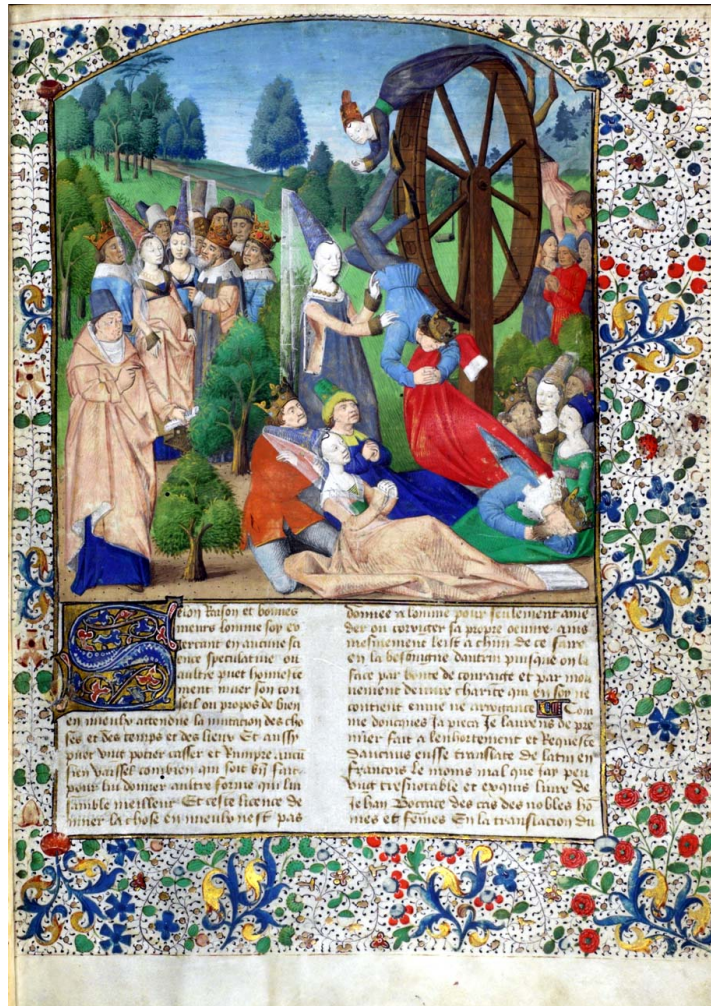 Selon Raison et bonnes
meurs lomme soy ex
cercant en aucune sci
ence speculatiue ou
aultre puet honneste
ment muer son con
seil ou propos de bien
en mieulx attendue la mutacion des cho
ses et des temps et des lieux Et aussy
puet vng potier casser et Rompre aucun
sien vaissel combien quil soit bien fait
pour lui donner aultre forme qui lui
samble meilleur Et ceste licence de
muer la chose en mieulx nest pas
donnee a lomme pour seulement amen
der ou corrigier sa propre oeuure ains
mesmement leist a chascun de ce faire
en la besoingne dautrui puisque on la
face par bonte de couraige et par mou
uement de vraye charite qui en soy ne
contient enuie ne arrogance Com
me doncques Ja pieca Je laurens de pre
mier fait a lenhortement et Requeste
daucuns eusse translate de latin en
francois le moins mal que Jay peu
vng tresnotable et exquis liure de
Jehan Boccace des cas des nobles hom
mes et femmes En la translacion du